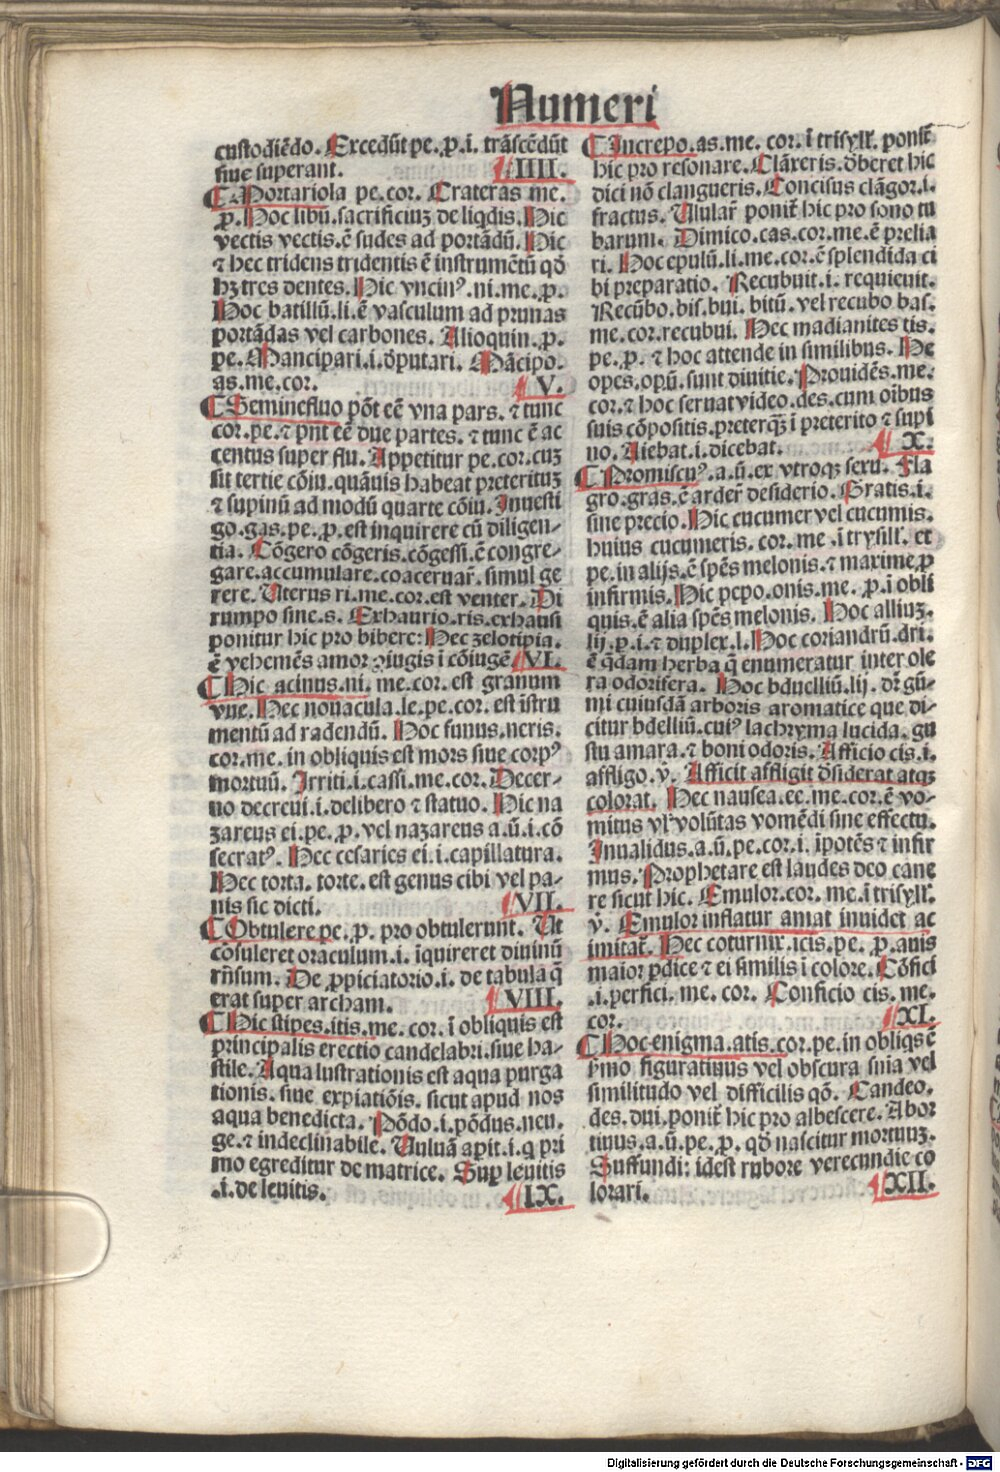 Numeri
custodiēdo. Excedūt pe. p. i. trāscēdūt
siue superant. IIII.
Portariola pe. cor. Crateras me.
p. Hoc libū. sacrificiuʒ de liqdis. Hic
vectis vectis. ē sudes ad portādū. Hic
⁊ hec tridens tridentis ē instrumētū qđ
hʒ tres dentes. Hic vncinꝰ. ni. me. p.
Hoc batillū. li. ē vasculum ad prunas
portādas vel carbones. Alioquin. p.
pe. Mancipari. i. đputari. Mācipo.
as. me. cor. V.
Semineflvo pōt eē vna pars. ⁊ tunc
cor. pe. ⁊ pnt eē due partes. ⁊ tunc ē ac
centus super flu. Appetitur pe. cor. cuʒ
sit tertie cōiu. quāuis habeat preterituʒ
⁊ supinū ad modū quarte cōiu. Inuesti
go. gas. pe. p. est inquirere cū diligen-
tia. Cōgero cōgeris. cōgessi. ē congre-
gare. accumulare. coaceruar̄. simul ge
rere. Uterus ri. me. cor. est venter. Di
rumpo sine. s. Exhaurio. ris. exhausi
ponitur hic pro bibere: Hec zelotipia.
ē vehemēs amor ↄiugis ī cōiugē VI.
Hic acinus. ni. me. cor. est granum
vue. Hec nouacula. le. pe. cor. est īstru
mentū ad radendū. Hoc funus. neris.
cor. me. in obliquis est mors siue corpꝰ
mortuū. Irriti. i. cassi. me. cor. Decer-
no decreui. i. delibero ⁊ statuo. Hic na
zareus ei. pe. p. vel nazareus a. ū. i. cō
secratꝰ. Hec cesaries ei. i. capillatura.
Hec torta. torte. est genus cibi vel pa-
nis sic dicti. VII.
Obtulere pe. p. pro obtulerunt. Ut
cōsuleret oraculum. i. īquireret diuinū
rn̄sum. De ꝓpiciatorio. i. de tabula q̄
erat super archam. VIII.
Hic stipes. itis. me. cor. ī obliquis est
principalis erectio candelabri. siue ha-
stile. Aqua lustrationis est aqua purga
tionis. siue expiatiōis. sicut apud nos
aqua benedicta. Pōdo. i. pōdus. neu.
ge. ⁊ indeclinabile. Uuluā apit. i. q pri
mo egreditur de matrice. Suꝑ leuitis
.i. de leuitis. IX.
Increpo. as. me. cor. ī trisyll'. ponit̄
hic pro resonare. Clāxeris. đberet hic
dici nō clangueris. Concisus clāgor. i.
fractus. Ululat̄ ponit̄ hic pro sono tu
barum. Dimico. cas. cor. me. ē prelia
ri. Hoc epulū. li. me. cor. ē splendida ci
bi preparatio. Recubuit. i. requieuit.
Recūbo. bis. bui. bitū. vel recubo bas.
me. cor. recubui. Hec madianites tis.
pe. p. ⁊ hoc attende in similibus. He
opes. opū. sunt diuitie. Prouidēs. me.
cor. ⁊ hoc seruat video. des. cum oībus
suis cōpositis. preterqʒ ī preterito ⁊ supi
no. Aiebat. i. dicebat. X.
Promiscuꝰ. a. ū. ex vtroqʒ sexu. Fla
gro. gras. ē arder̄ desiderio. Gratis. i.
sine precio. Hic cucumer vel cucumis.
huius cucumeris. cor. me. ī trysill'. et
pe. in alijs. ē spēs melonis. ⁊ maxime p
infirmis. Hic pepo. onis. me. p. ī obli
quis. ē alia spēs melonis. Hoc alliuʒ.
lij. p. i. ⁊ duplex. l. Hoc coriandrū. dri.
ē qdam herba q̄ enumeratur inter ole
ra odorifera. Hoc bduelliū. lij. dr̄ gū-
mi cuiusdā arboris aromatice que di-
citur bdelliū. cuiꝰ lachryma lucida. gu
stu amara. ⁊ boni odoris. Afficio cis. i.
affligo. v̄. Afficit affligit đsiderat atqʒ
colorat. Hec nausea. ee. me. cor. ē vo-
mitus vl' volūtas vomēdi sine effectu.
Inualidus. a. ū. pe. cor. i. īpotēs ⁊ infir
mus. Prophetare est laudes deo cane
re sicut hic. Emulor. cor. me. ī trisyll'.
v̄. Emulor inflatur amat inuidet ac
imitat̄. Hec coturnix. icis. pe. p. auis
maior ꝑdice ⁊ ei similis ī colore. Cōfici
.i. perfici. me. cor. Conficio cis. me.
cor. XI.
Hoc enigma. atis. cor. pe. in obliqs ē
sermo figuratiuus vel obscura snīa vel
similitudo vel difficilis qō. Candeo.
des. dui. ponit̄ hic pro albescere. Abor
tiuus. a. ū. pe. p. qđ nascitur mortuuʒ.
Suffundi: idest rubore verecundie co
lorari. XII.
Digitalisierung gefördert durch die Deutsche Forschungsgemeinschaft - DFG